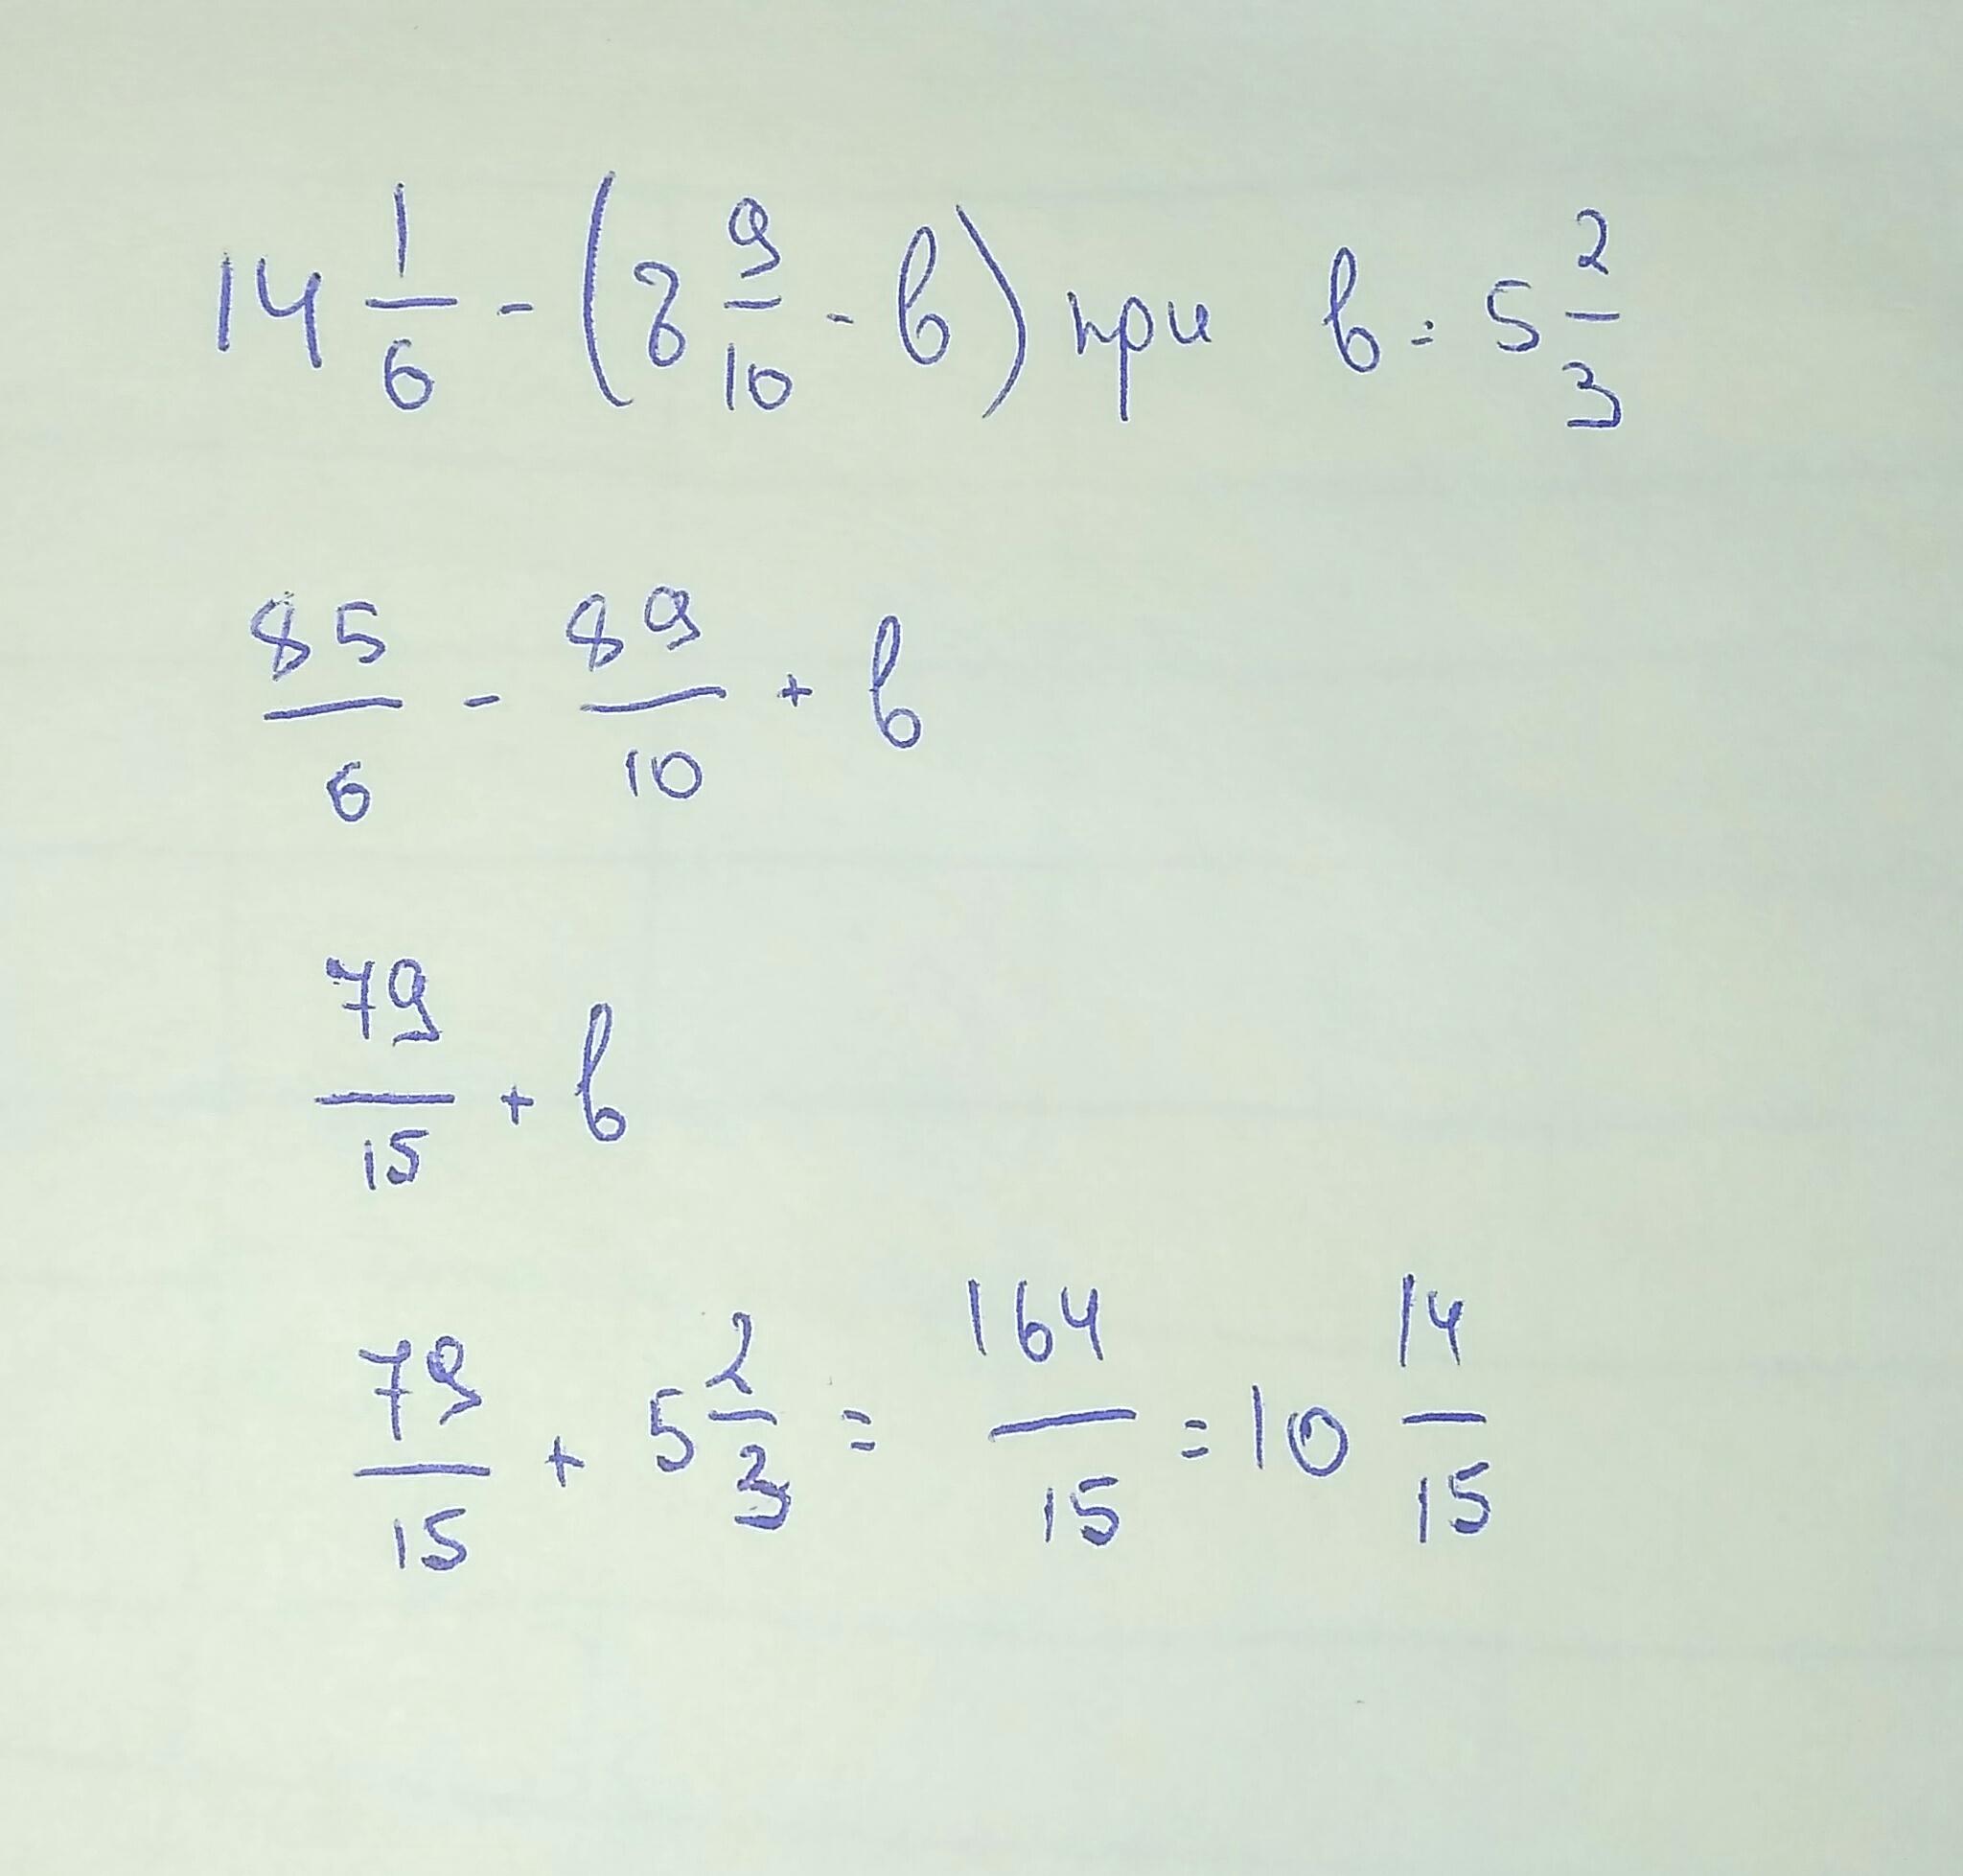 14 1/6 - (8 9/10 - b) при b = 5 2/3
85/6 - 89/10 + b
79/15 + b
79/15 + 5 2/3 = 164/15 = 10 14/15